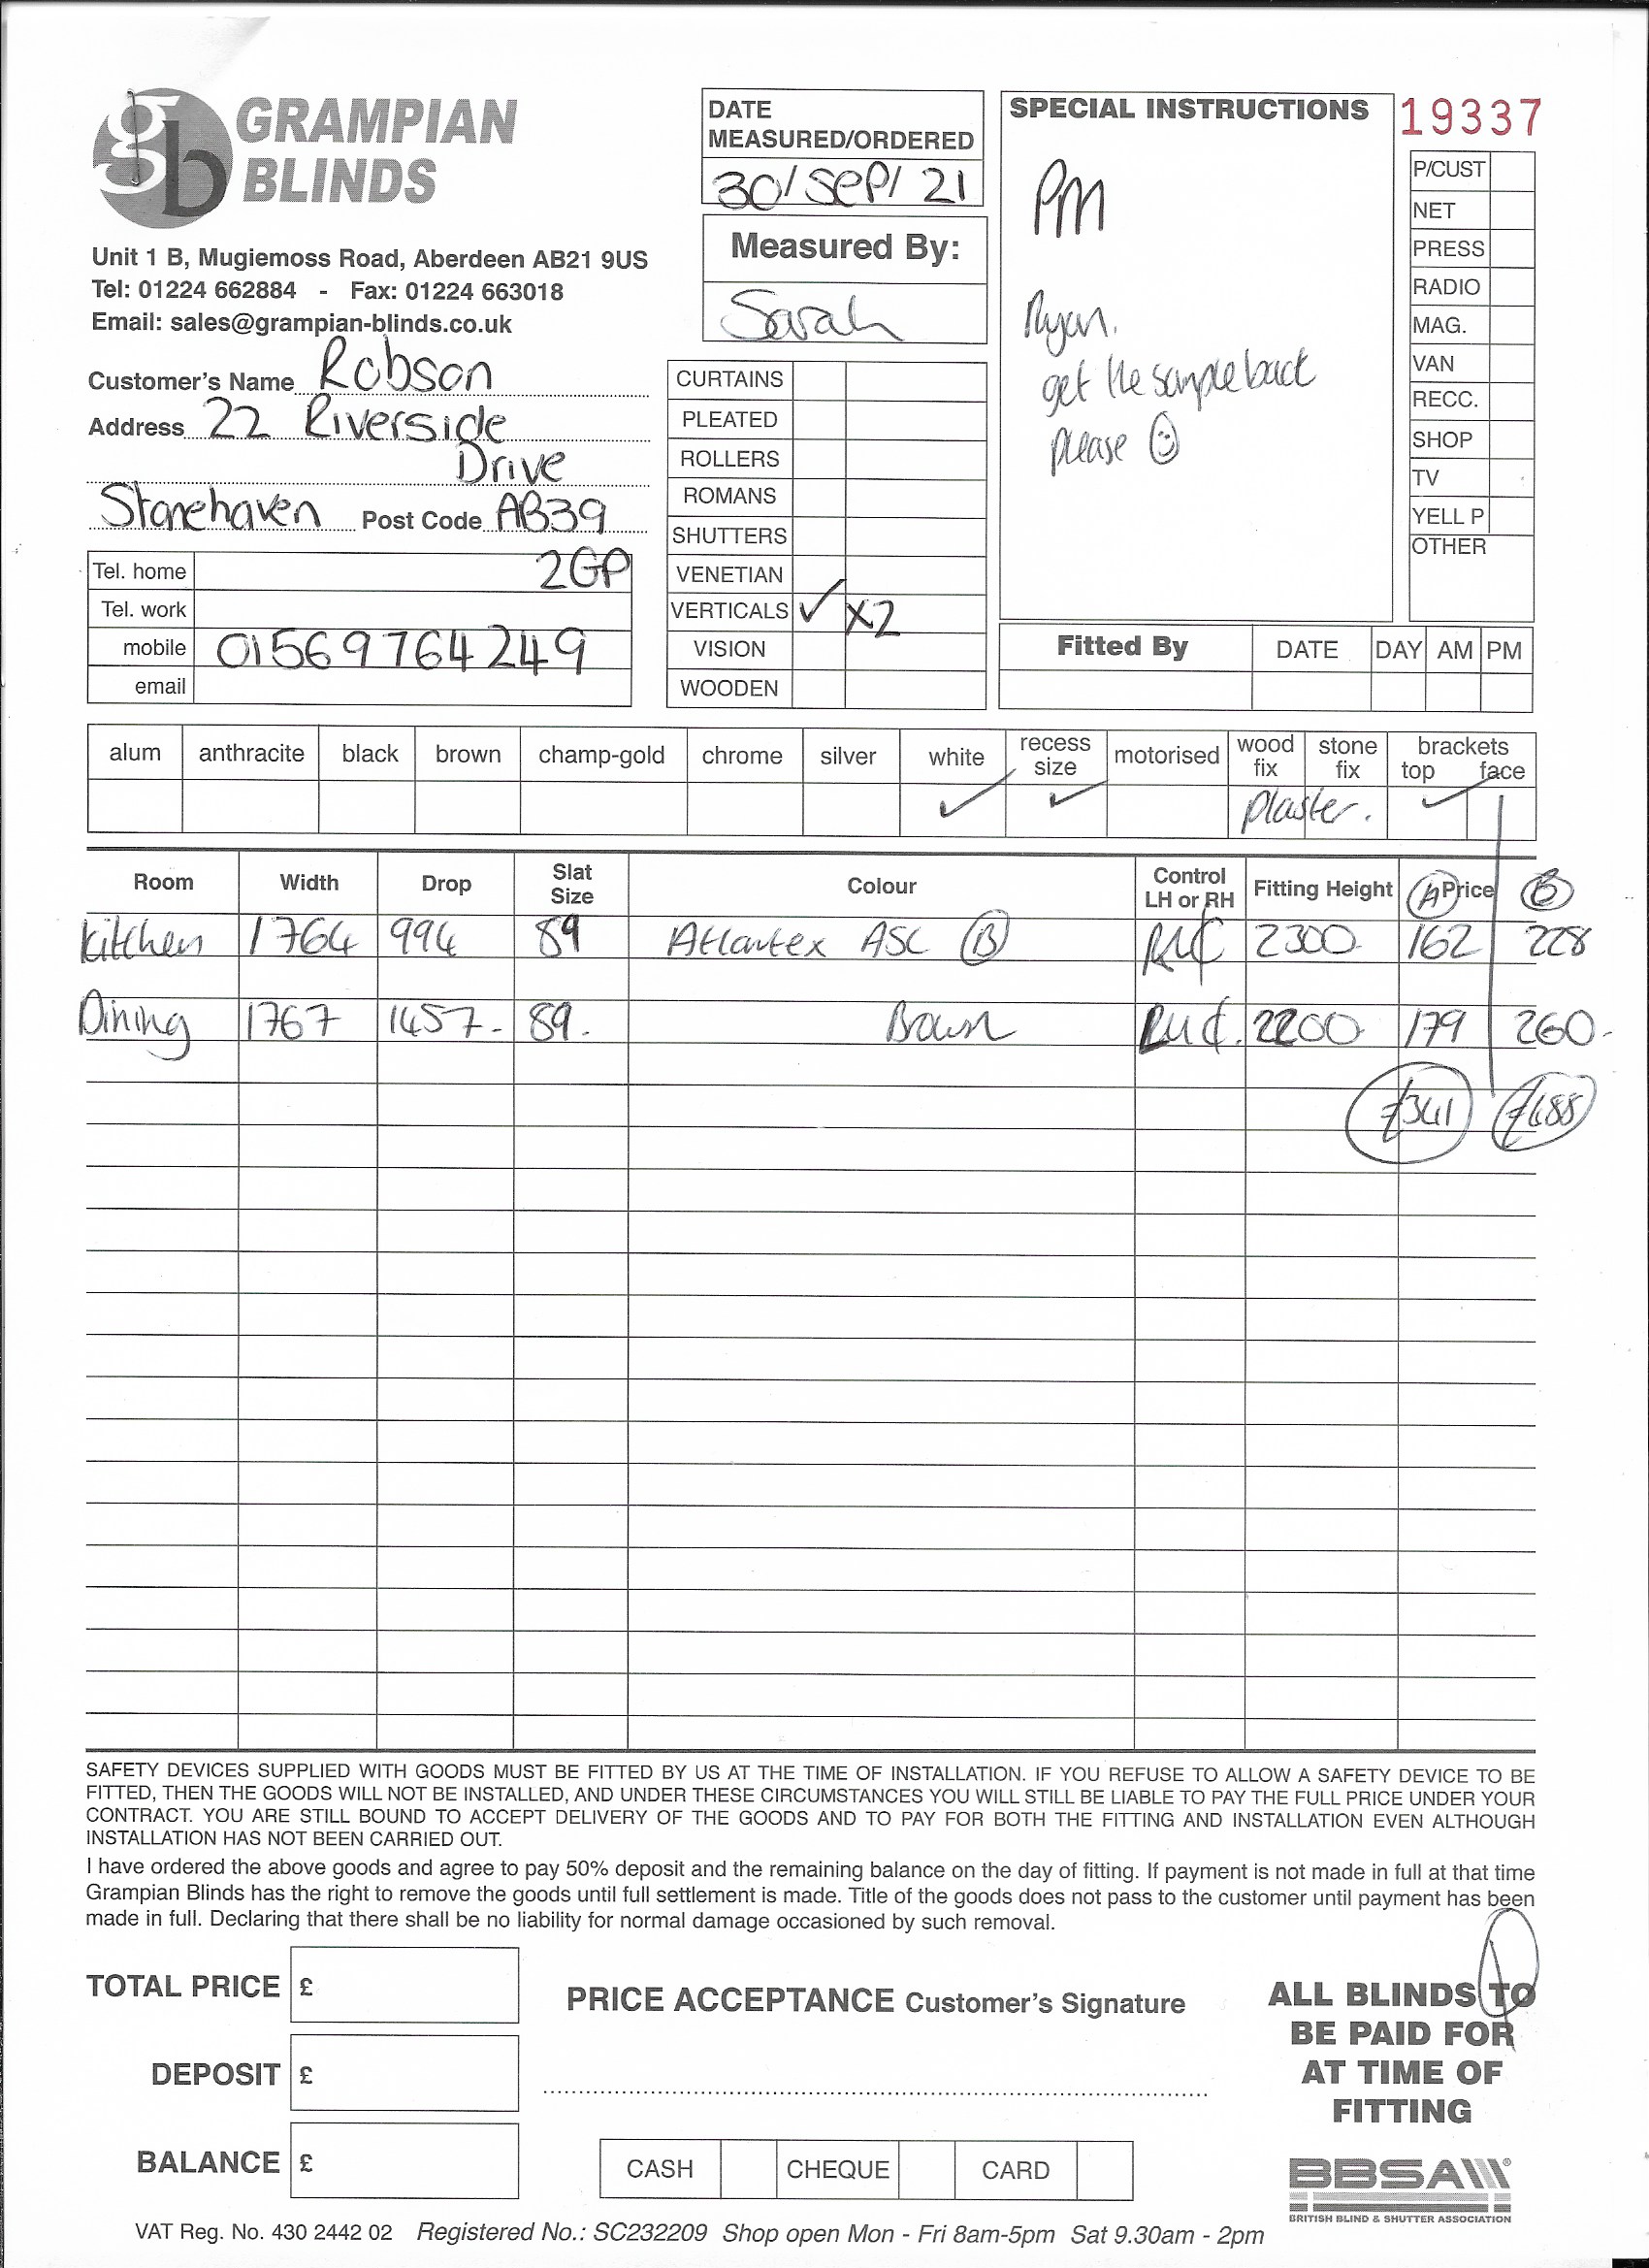 gb GRAMPIAN
BLINDS
Unit 1 B, Mugiemoss Road, Aberdeen AB21 9US
Tel: 01224 662884 - Fax: 01224 663018
Email: sales@grampian-blinds.co.uk
Customer's Name Robson
Address 22 Riverside
Drive
Stonehaven Post Code AB39
2GP
Tel. home
Tel. work
mobile 01569764249
email
DATE
MEASURED/ORDERED
30/SEP/21
Measured By:
Sarah
CURTAINS
PLEATED
ROLLERS
ROMANS
SHUTTERS
VENETIAN
VERTICALS ✓ X2
VISION
WOODEN
SPECIAL INSTRUCTIONS
PM
Ryan.
get the sample back
please ☺
19337
P/CUST
NET
PRESS
RADIO
MAG.
VAN
RECC.
SHOP
TV
YELL P
OTHER
Fitted By DATE DAY AM PM
alum anthracite black brown champ-gold chrome silver white recess size motorised wood fix stone fix brackets top face
✓ ✓ plaster. ✓
Room Width Drop Slat Size Colour Control LH or RH Fitting Height (A) Price (B)
Kitchen 1764 994 89 Atlantex ASC (B) 2300 162 228
Dining 1767 1457 - 89. 2200 179 260-
£341 £488
SAFETY DEVICES SUPPLIED WITH GOODS MUST BE FITTED BY US AT THE TIME OF INSTALLATION. IF YOU REFUSE TO ALLOW A SAFETY DEVICE TO BE
FITTED, THEN THE GOODS WILL NOT BE INSTALLED, AND UNDER THESE CIRCUMSTANCES YOU WILL STILL BE LIABLE TO PAY THE FULL PRICE UNDER YOUR
CONTRACT. YOU ARE STILL BOUND TO ACCEPT DELIVERY OF THE GOODS AND TO PAY FOR BOTH THE FITTING AND INSTALLATION EVEN ALTHOUGH
INSTALLATION HAS NOT BEEN CARRIED OUT.
I have ordered the above goods and agree to pay 50% deposit and the remaining balance on the day of fitting. If payment is not made in full at that time
Grampian Blinds has the right to remove the goods until full settlement is made. Title of the goods does not pass to the customer until payment has been
made in full. Declaring that there shall be no liability for normal damage occasioned by such removal.
TOTAL PRICE £
DEPOSIT £
BALANCE £
PRICE ACCEPTANCE Customer's Signature
CASH CHEQUE CARD
ALL BLINDS TO
BE PAID FOR
AT TIME OF
FITTING
BBSA
BRITISH BLIND & SHUTTER ASSOCIATION
VAT Reg. No. 430 2442 02 Registered No.: SC232209 Shop open Mon - Fri 8am-5pm Sat 9.30am - 2pm